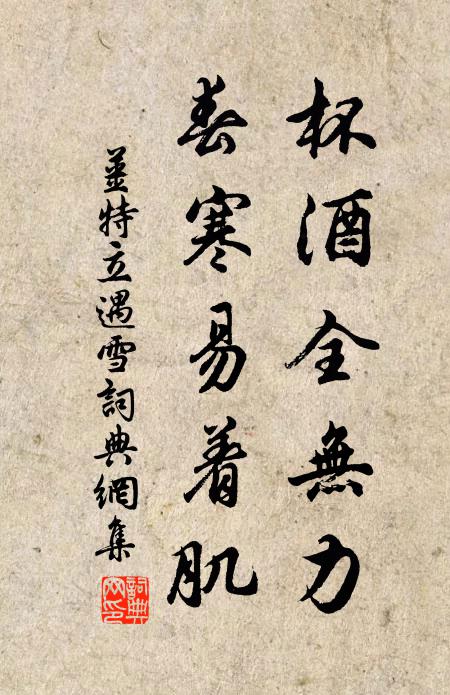 杯酒全無力
春寒易着肌
姜特立遇雪詞典網集
詞典网印